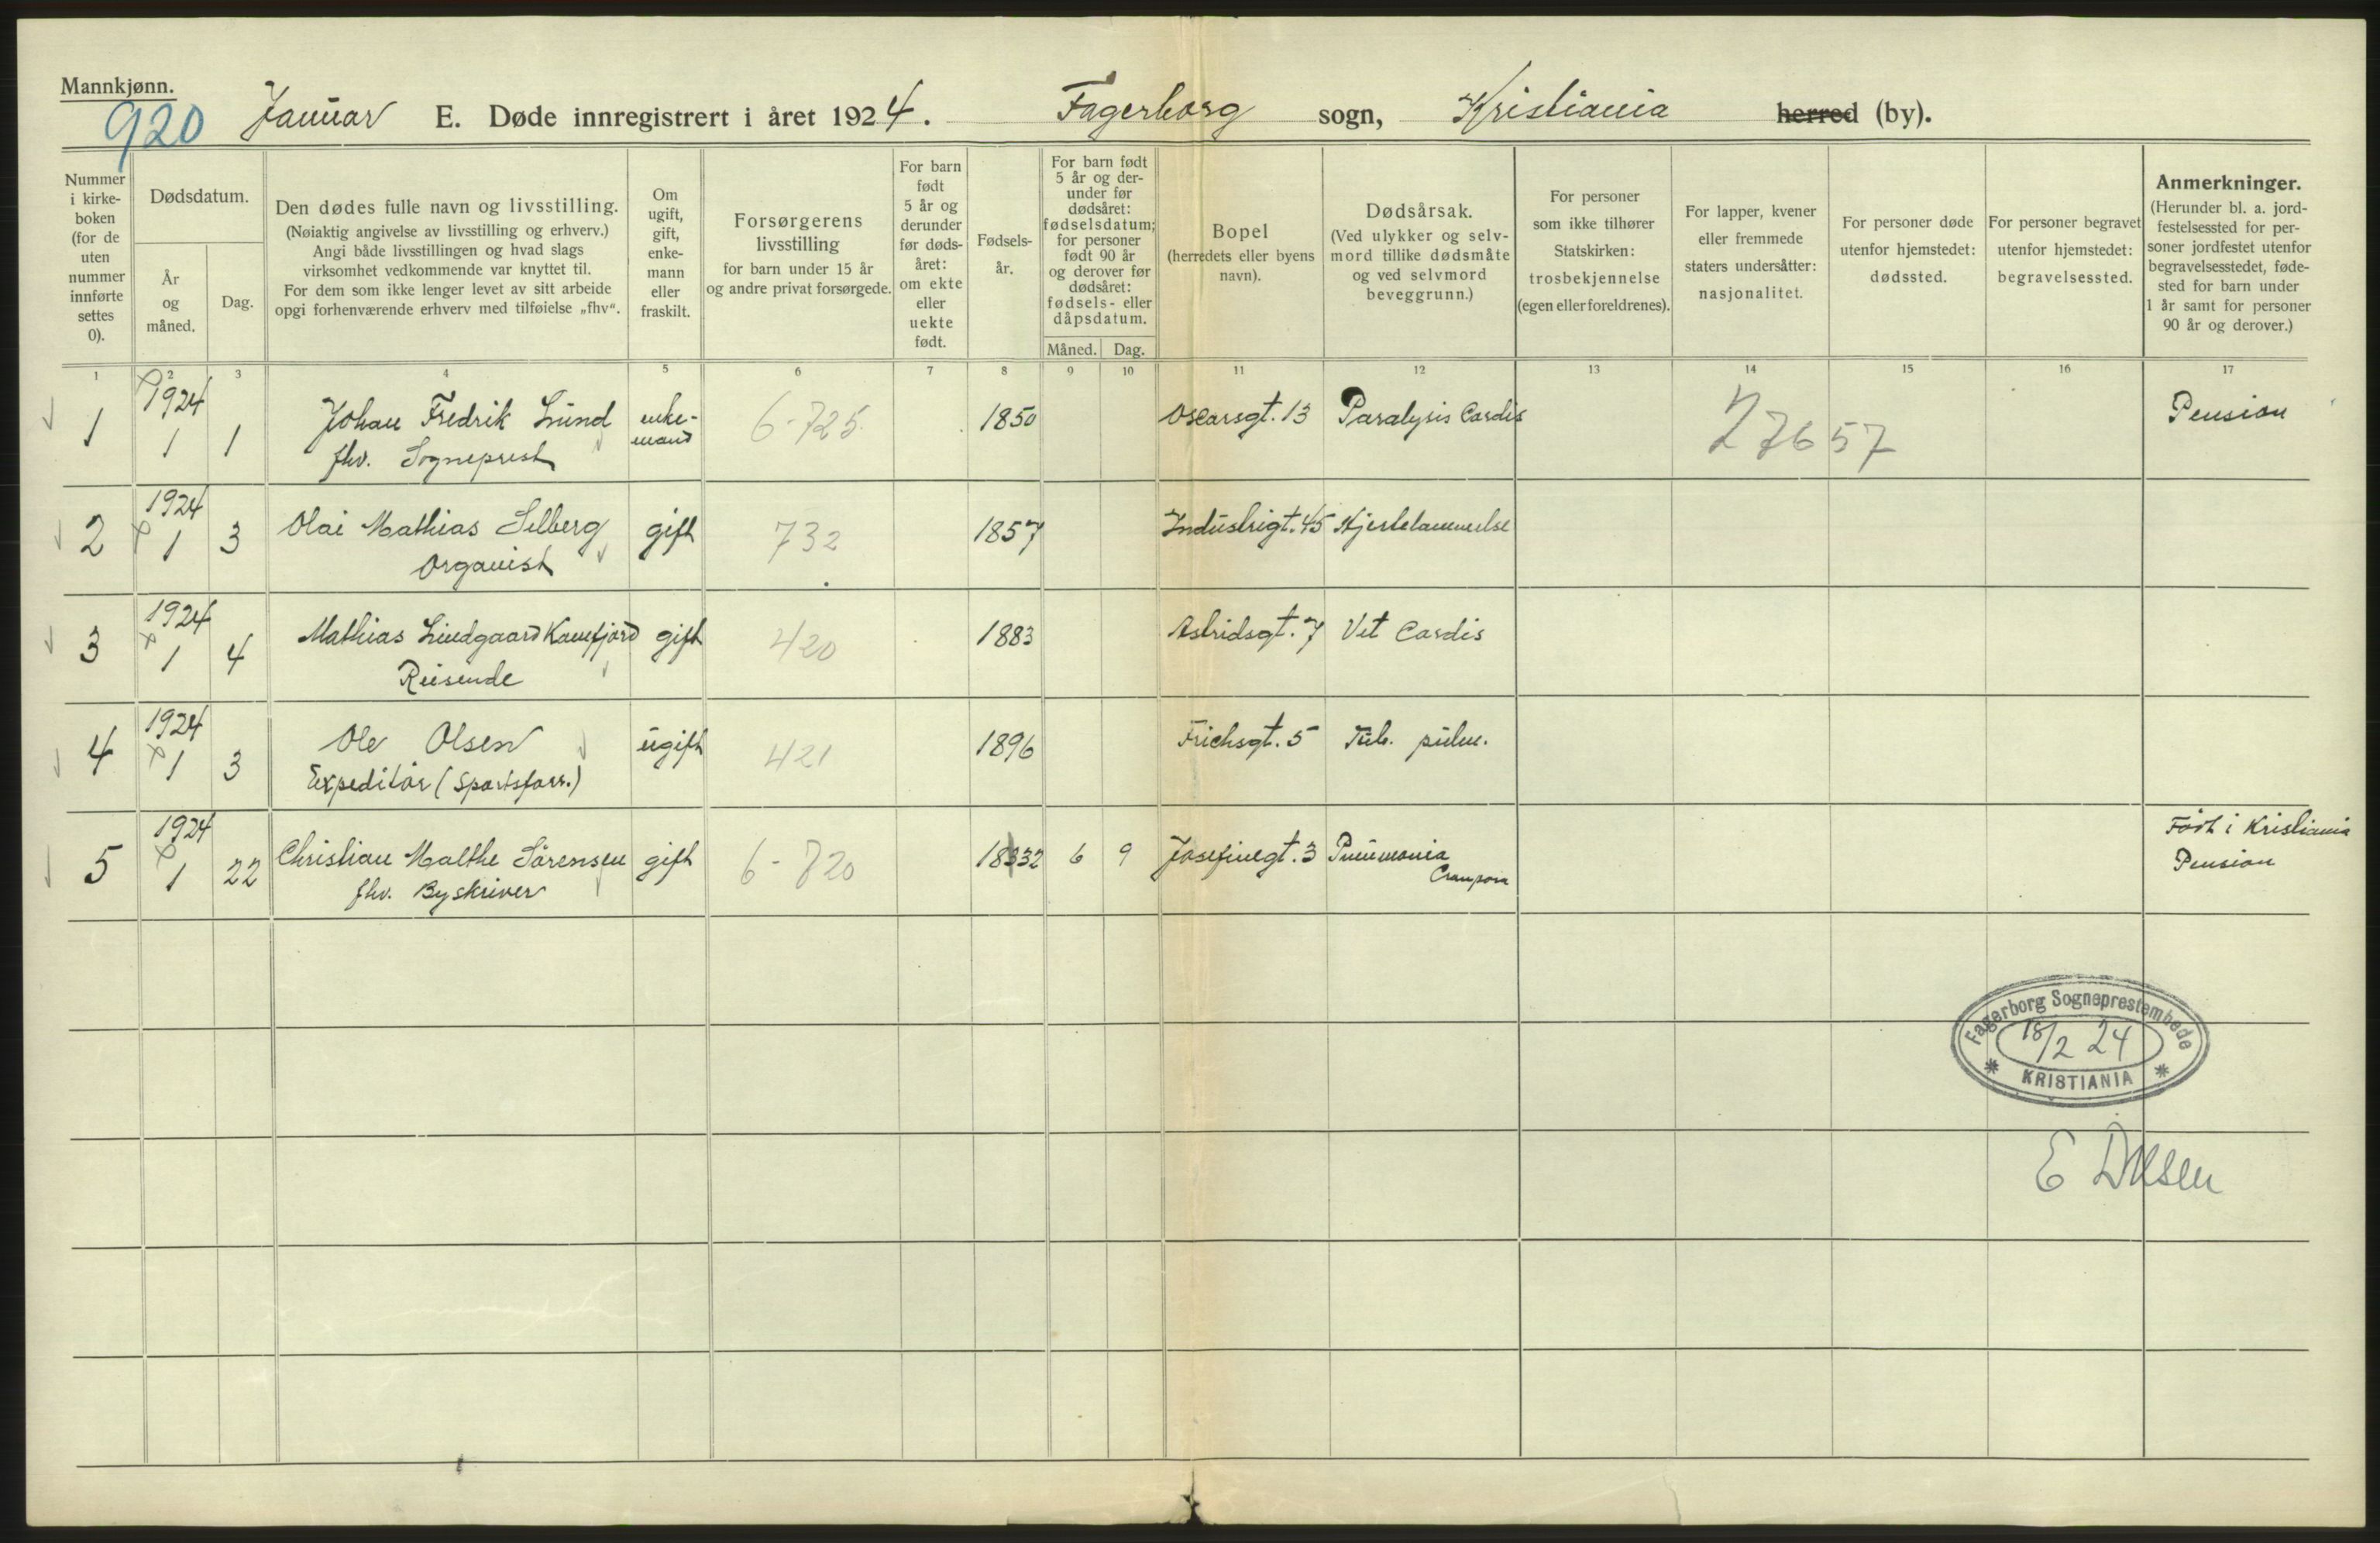 Mannkjønn.
920 Januar E. Døde innregistrert i året 1924. Fagerborg sogn, Kristiania herred (by).
Nummer i kirke-boken (for de uten nummer innførte settes 0).
Dødsdatum.
År og måned.
Dag.
Den dødes fulle navn og livsstilling.
(Nøiaktig angivelse av livsstilling og erhverv.)
Angi både livsstillingen og hvad slags
virksomhet vedkommende var knyttet til.
For dem som ikke lenger levet av sitt arbeide
opgi forhenværende erhverv med tilføielse „fhv“.
Om ugift, gift, enke-mann eller fraskilt.
Forsørgerens
livsstilling
for barn under 15 år
og andre privat forsørgede.
For barn født 5 år og derunder før døds-året: om ekte eller uekte født.
Fødsels-år.
For barn født 5 år og der-under før dødsåret: fødselsdatum; for personer født 90 år og derover før dødsåret: fødsels- eller dåpsdatum.
Måned. Dag.
Bopel
(herredets eller byens navn).
Dødsårsak.
(Ved ulykker og selv-mord tillike dødsmåte og ved selvmord beveggrunn.)
For personer som ikke tilhører Statskirken: trosbekjennelse (egen eller foreldrenes).
For lapper, kvener eller fremmede staters undersåtter: nasjonalitet.
For personer døde utenfor hjemstedet: dødssted.
For personer begravet utenfor hjemstedet: begravelsessted.
Anmerkninger.
(Herunder bl. a. jord-festelsessted for per-soner jordfestet utenfor begravelsesstedet, føde-sted for barn under 1 år samt for personer 90 år og derover.)
1 2 3 4 5 6 7 8 9 10 11 12 13 14 15 16 17
1 1924 1 1 Johan Fredrik Lund enke-mand 6-725 1850 Oscarsgt. 13 Paralysis Cordis 27657 Pension
fhv. Sogneprest
2 1924 1 3 Olai Mathias Selberg gift 732 1857 Industrigt. 45 Hjertelammelse
Organist
3 1924 1 4 Mathias Lindgaard Kamfjord gift 420 1883 Astridsgt. 7 Vit Cordis
Reisende
4 1924 1 3 Ole Olsen ugift 421 1896 Frichsgt. 5 Tub. pulm.
Expeditør (Sportsforr.)
5 1924 1 22 Christian Malthe Sørensen gift 6-820 1832 6 9 Josefinegt. 3 Pneumonia Født i Kristiania
fhv. Byskriver Pension
Fagerborg Sogneprestembede
18/2 24
* KRISTIANIA *